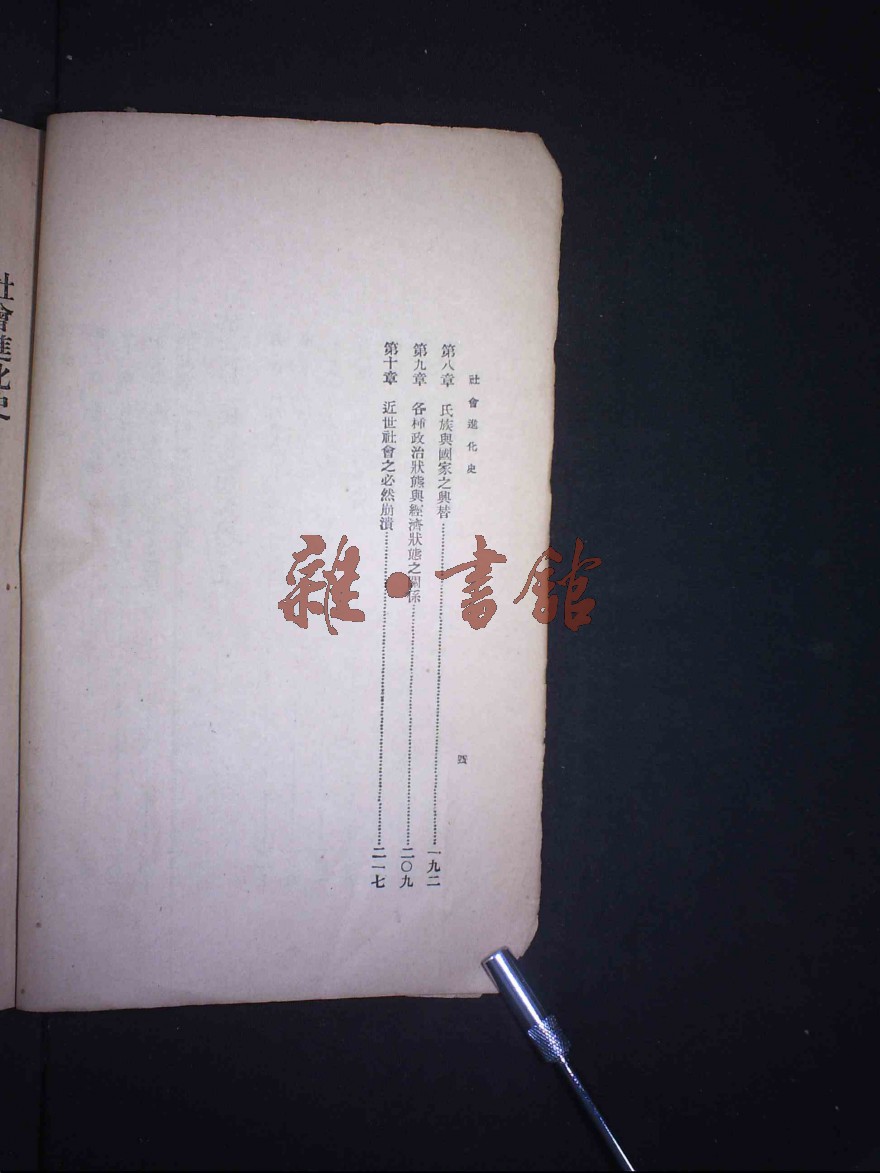 社會進化史
第八章　氏族與國家之興替……一九二
第九章　各種政治狀態與經濟狀態之關係……二〇九
第十章　近世社會之必然崩潰……二一七
四
社會進化史
雜•書館